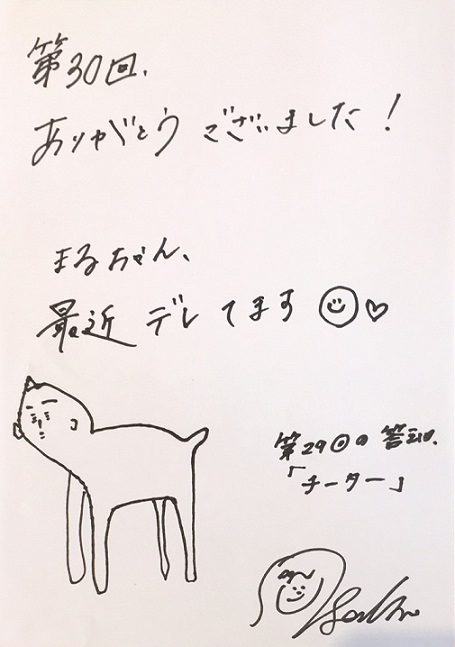 第30回、
ありがとうございました!
まるちゃん、
最近デレてます
第29回の答えは、
「チーター」